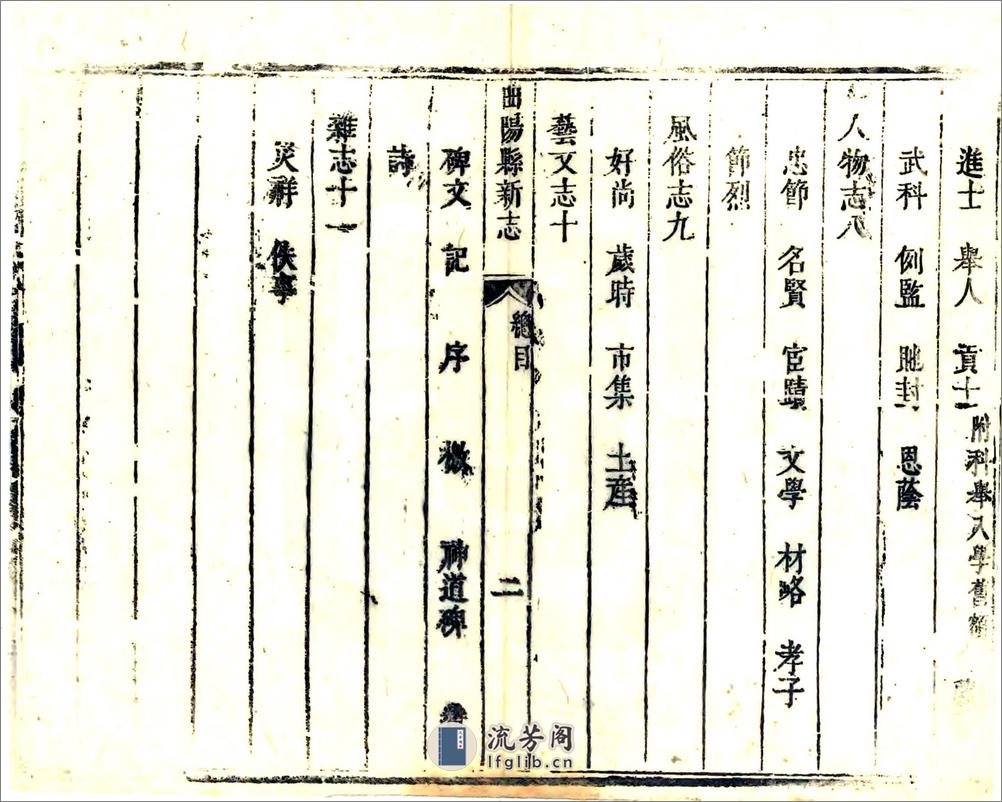 進士 舉人 貢士 附科舉入學舊額
武科 例監 馳封 恩蔭
人物志八
忠節 名賢 宦蹟 文學 材略 孝子
節烈
風俗志九
好尚 歲時 市集 土產
藝文志十
曲陽縣新志 總目 二
碑文 記 序 檄 神道碑
詩
雜志十一
災祥 佚事
流芳阁
lfglib.cn